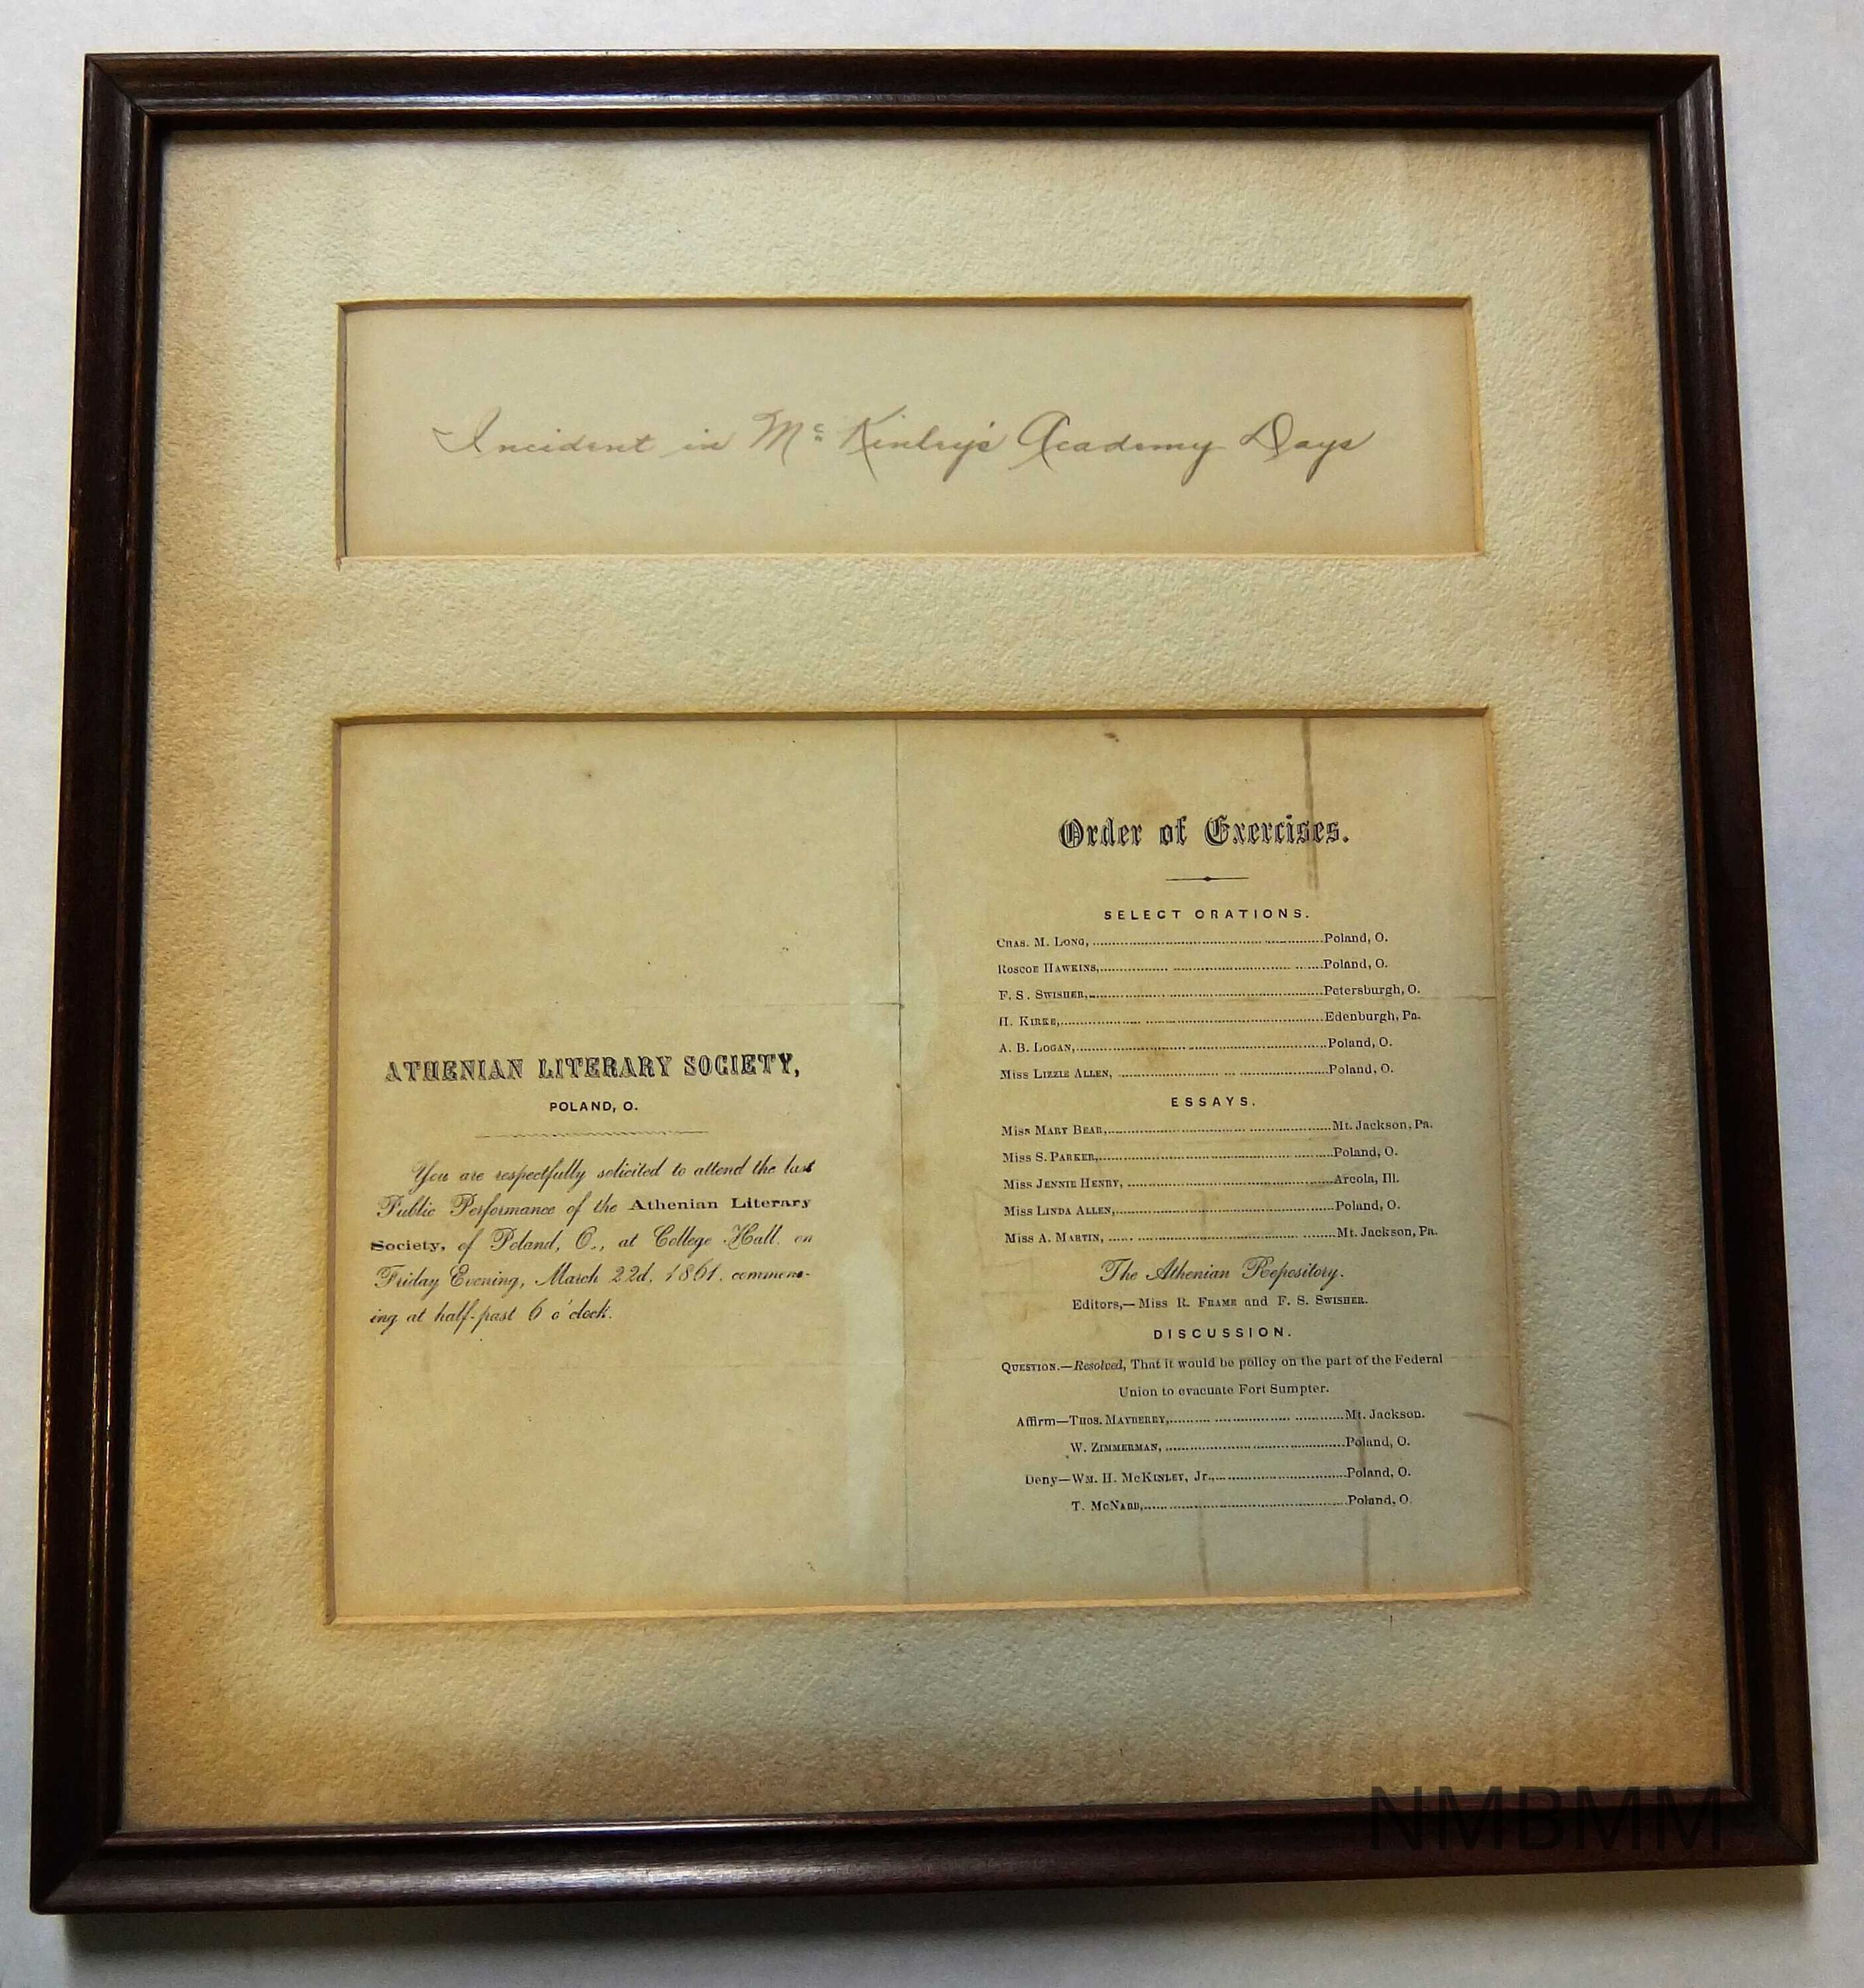 Incident in Mc Kinley's Academy Days
ATHENIAN LITERARY SOCIETY,
POLAND, O.
You are respectfully solicited to attend the last
Public Performance of the Athenian Literary
Society, of Poland, O., at College Hall, on
Friday Evening, March 22d, 1861, commenc-
ing at half-past 6 o'clock.
Order of Exercises.
SELECT ORATIONS.
CHAS. M. LONG,..........Poland, O.
ROSCOE HAWKINS,..........Poland, O.
F. S. SWISHER,..........Petersburgh, O.
H. KIRKE,..........Edenburgh, Pa.
A. B. LOGAN,..........Poland, O.
MISS LIZZIE ALLEN,..........Poland, O.
ESSAYS.
MISS MARY BEAR,..........Mt. Jackson, Pa.
MISS S. PARKER,..........Poland, O.
MISS JENNIE HENRY,..........Arcola, Ill.
MISS LINDA ALLEN,..........Poland, O.
MISS A. MARTIN,..........Mt. Jackson, Pa.
The Athenian Repository.
Editors,—MISS R. FRAME and F. S. SWISHER.
DISCUSSION.
QUESTION.—Resolved, That it would be policy on the part of the Federal
Union to evacuate Fort Sumpter.
Affirm—THOS. MAYBERRY,..........Mt. Jackson.
W. ZIMMERMAN,..........Poland, O.
Deny—WM. H. MCKINLEY, Jr.,..........Poland, O.
T. MCNABB,..........Poland, O.
NMBMM